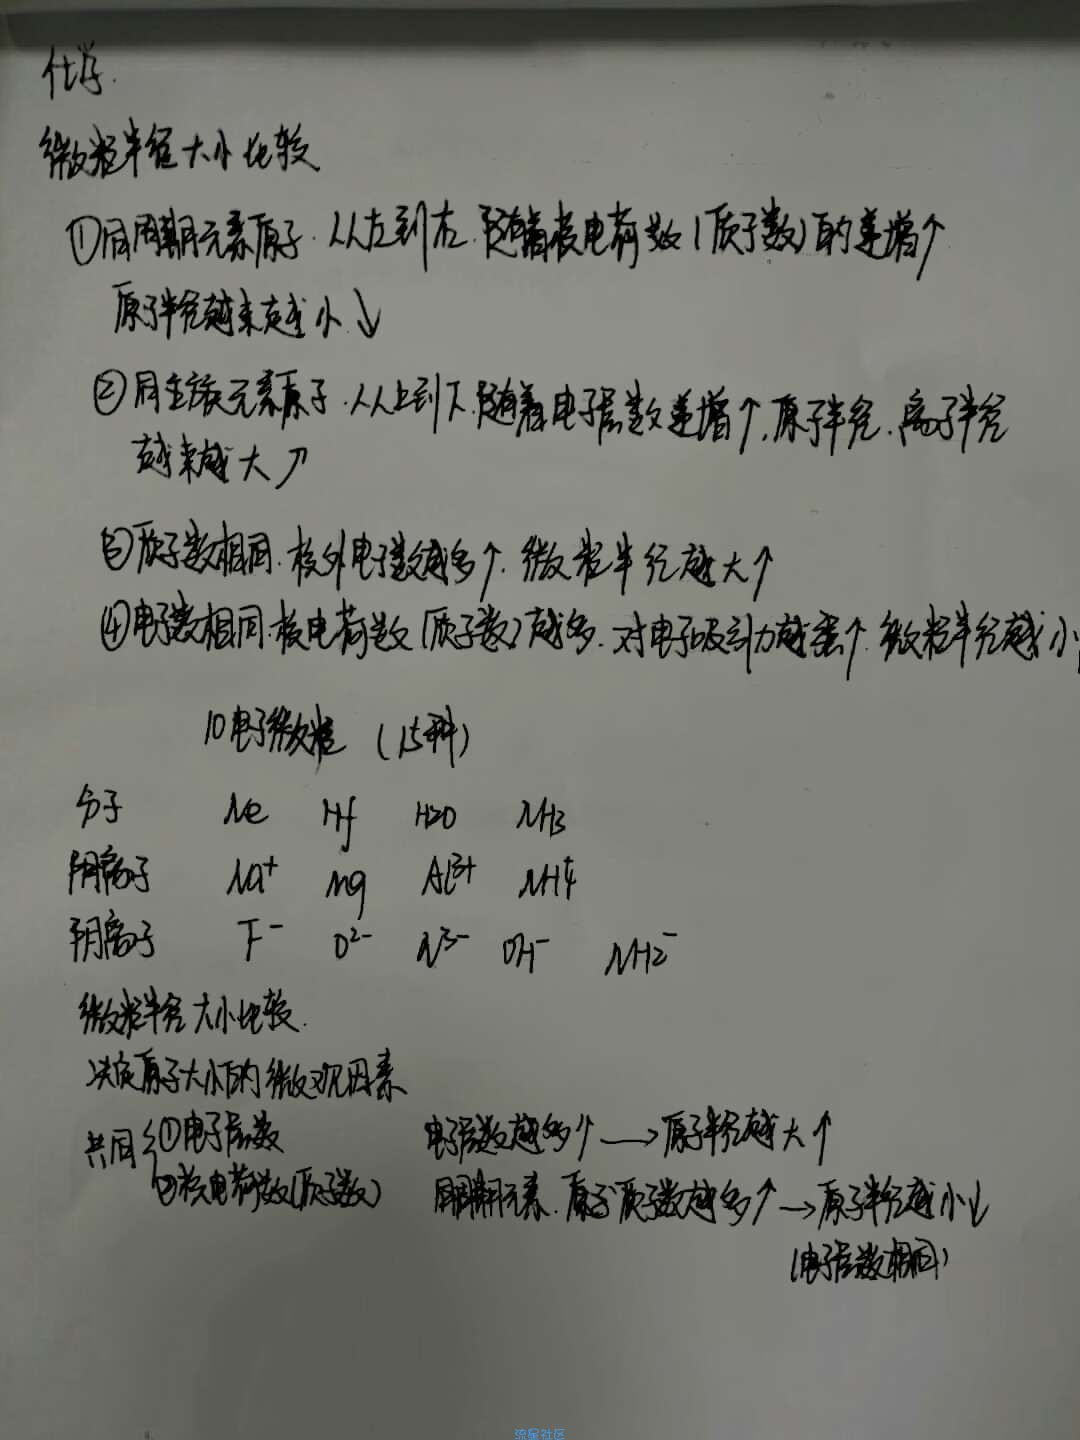 化学.
微粒半径大小比较
①同周期元素原子.从左到右.随着核电荷数(质子数)的递增↑
原子半径越来越小↓
②同主族元素原子.从上到下.随着电子层数递增↑.原子半径.离子半径
越来越大↗
③质子数相同.核外电子数越多↑.微粒半径越大↑
④电子数相同.核电荷数(质子数)越多.对电子吸引力越强↑.微粒半径越小
10电子微粒 (15种)
分子 Ne Hf H2O NH3
阳离子 Na⁺ Mg Al³⁺ NH4⁺
阴离子 F⁻ O²⁻ N³⁻ OH⁻ NH2⁻
微粒半径大小比较.
决定原子大小的微观因素
共同{①电子层数 电子层数越多↑→原子半径越大↑
②核电荷数(质子数) 同周期元素.原子质子数越多↑→原子半径越小↓
(电子层数相同)
流星社区